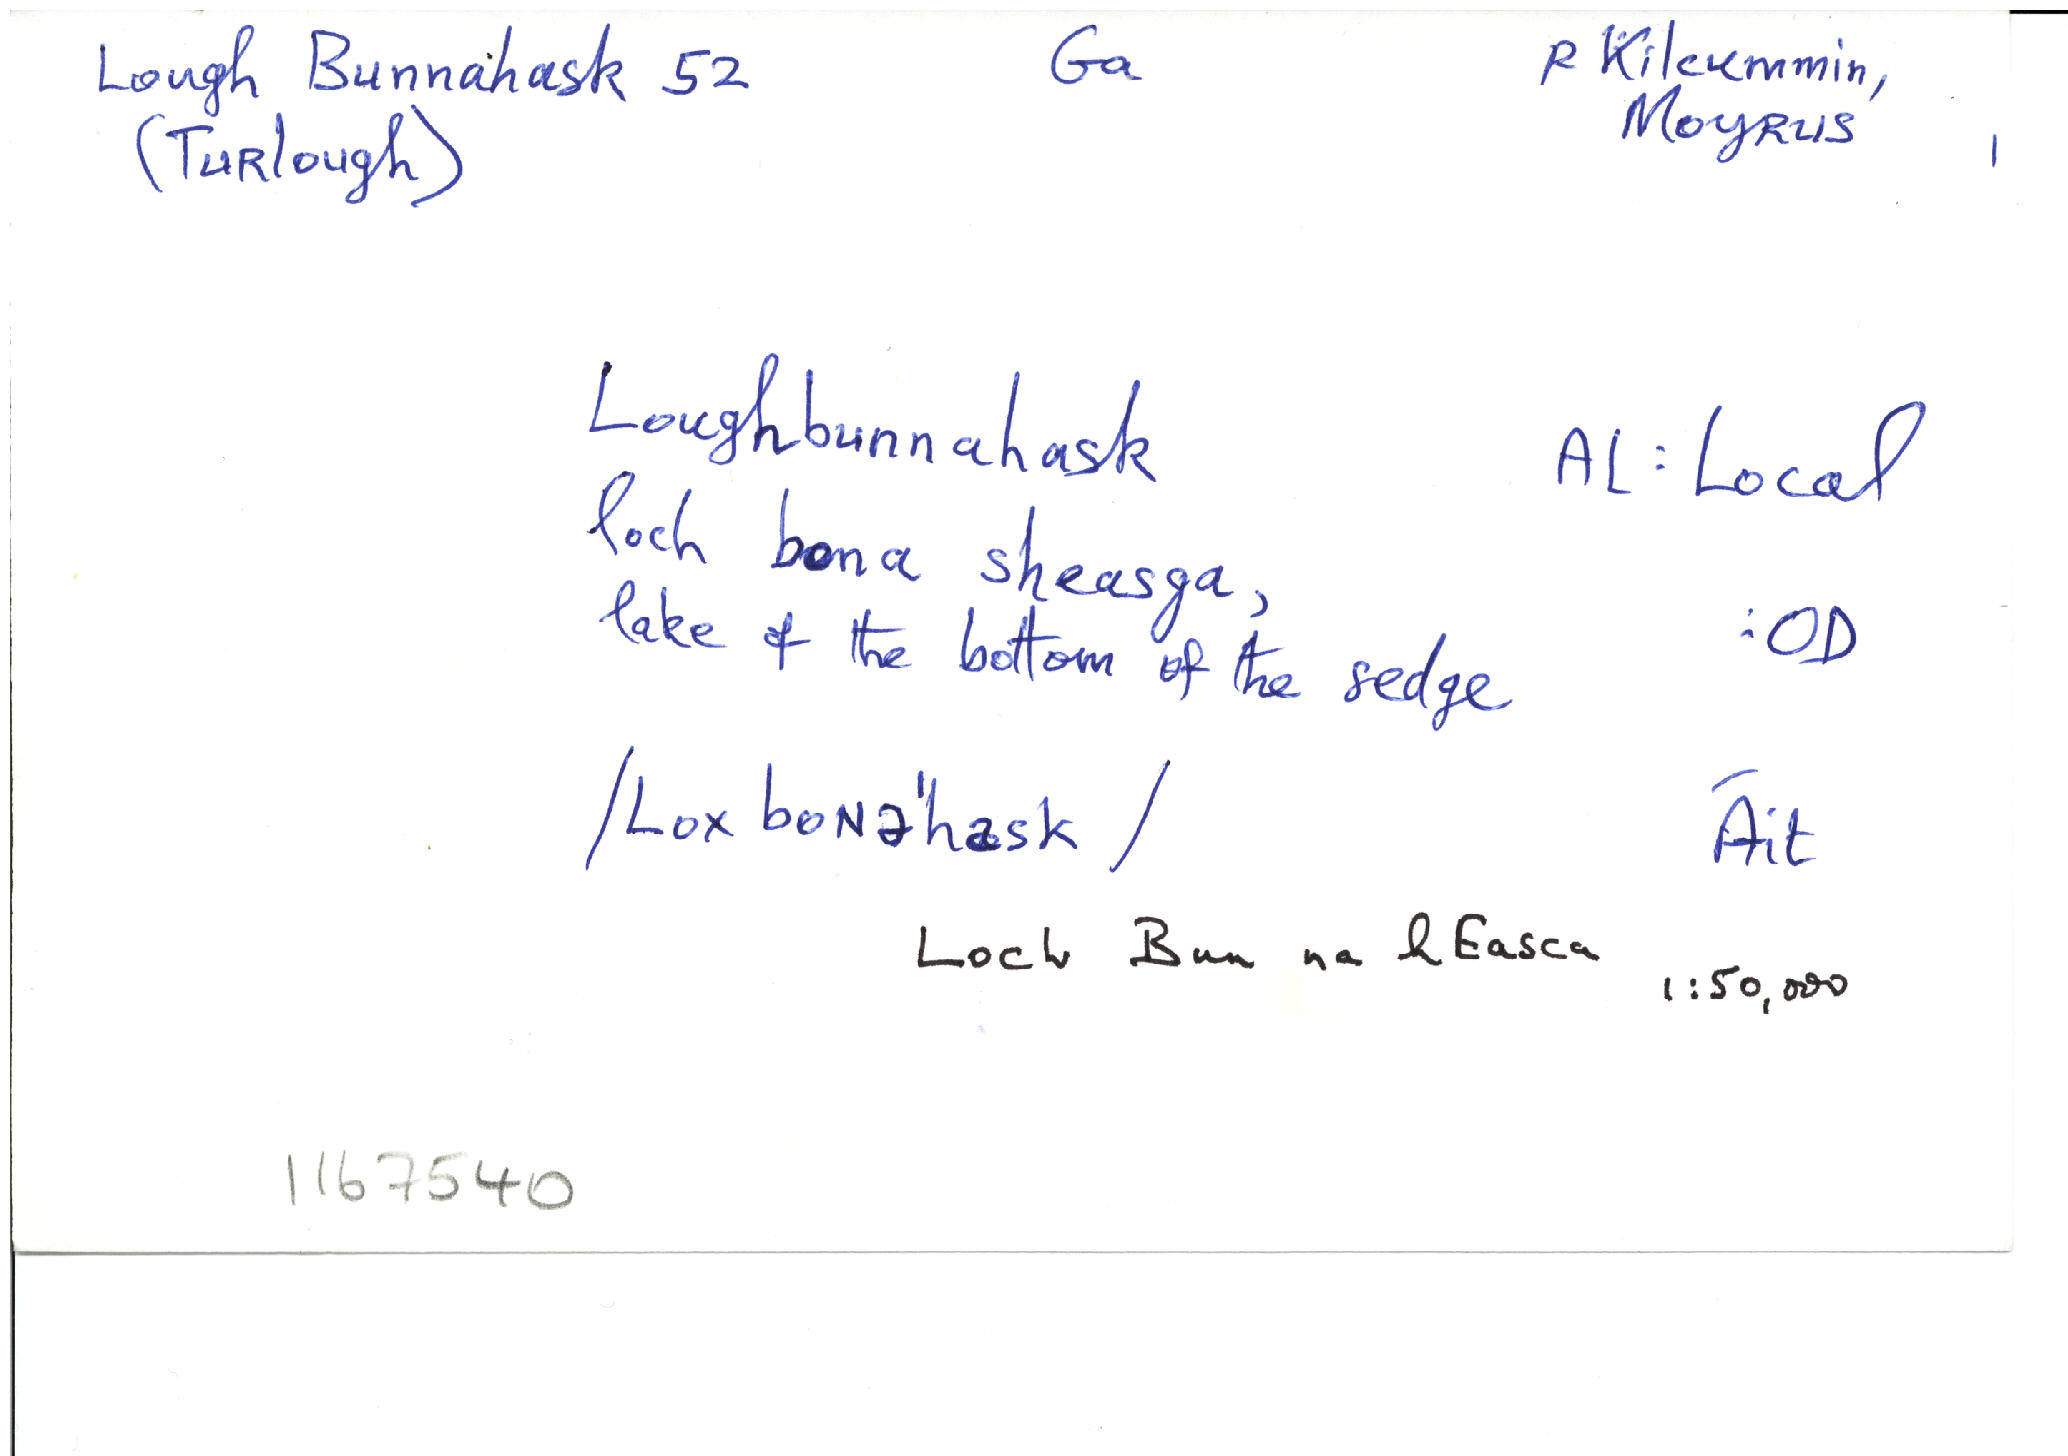 Lough Bunnahask 52 Ga P Kilcummin,
(Turlough) Moyrus 1
Loughbunnahask AL: Local
loch bona sheasga,
lake of the bottom of the sedge :OD
/Lox boNə"hask/ Áit
Loch Bun na hEasca 1:50,000
1167540